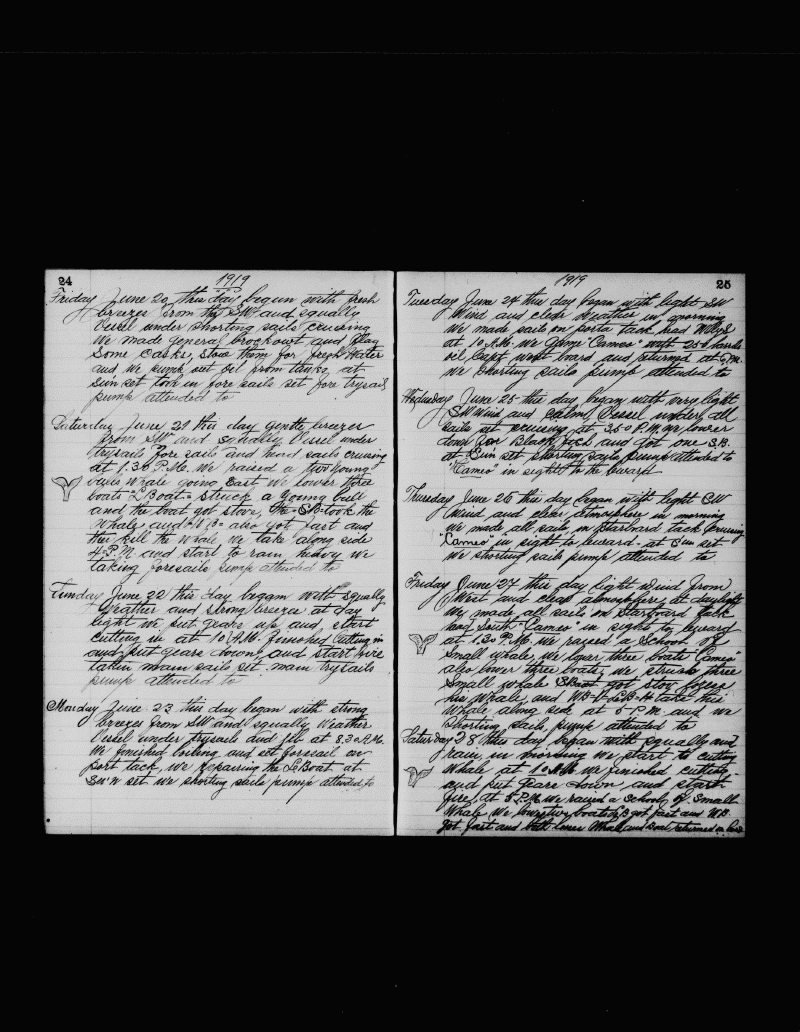 24
1919
Friday June 20 this day begun with fresh
breezes from the SW and squally
Vessel under shorting sails cruising
We made general brockout and
Some Casks, Stow them for fresh Water
and we pump out oil from tanks, at
Sun set took in fore sails set fore trysail
pump attended to
Saturday June 21 this day gentle breezes
from SW and squally Vessel under
trysails fore sails and head sails cruising
at 1.30 P.M. We raised a Young
Whale going East. We lower three
boats "L Boat" struck a Young bull
and the boat got stove, the SB took the
Whale, and W.B. also got fast and
this kill the Whale we take along side
4 P.M and start to rain heavy we
taking foresails pump attended to
Sunday June 22 this day began with squally
Weather and strong breezes at day
light we put gears up and start
cutting in at 10 A.M. Finished Cutting in
and put gears down, and start fire
taken main sails set main trysails
pump attended to
Monday June 23 this day began with strong
breezes from SW and squally Weather
Vessel under trysails and jib at 8.30 A.M.
We finished boiling and set foresail on
port tack, we repairing the L Boat at
Sun set we shorting sails pump attended to
1919
25
Tuesday June 24 this day began with light SW
Wind and clear Weather in morning
We made sails on port tack head
at 10 A.M. we Game "Cameo" with 250 barrels
oil Capt. went board and returned at P.M.
We shorting sails pump attended to
Wednesday June 25 this day began with very light
SW Wind and Vessel under all
sails at cruising at 3.50 P.M. We lower
down for Black fish and got one S.B.
at Sun set shorting sails pump attended to
"Cameo" in sight to Leward
Thursday June 26 this day began with light SW
Wind and clear Atmosphere in morning
We made all sails on Starboard tack Cruising
"Cameo" in sight to leward at Sun set
We shorting sails pump attended to
Friday June 27 this day light Wind from
West and clear atmosphere at daylight
We made all sails on Starboard tack
South "Cameo" in sight to leward
at 1.30 P.M. we raised a School of
Small whale, we lower three boats "Cameo"
also lower three boats, we struck three
Small whale got
his Whale, and take this
Whale along side at 5 P.M. and we
Shorting sails, pump attended to
Saturday 28 this day began with squally and
rain, in morning we start to cutting
Whale at 10 A.M. We finished cutting
and put gears down and start
fire, at 5 P.M. we raised a School of Small
Whale, We lower two boats got fast and W.B.
got fast and both loose Whale and boat returned on board